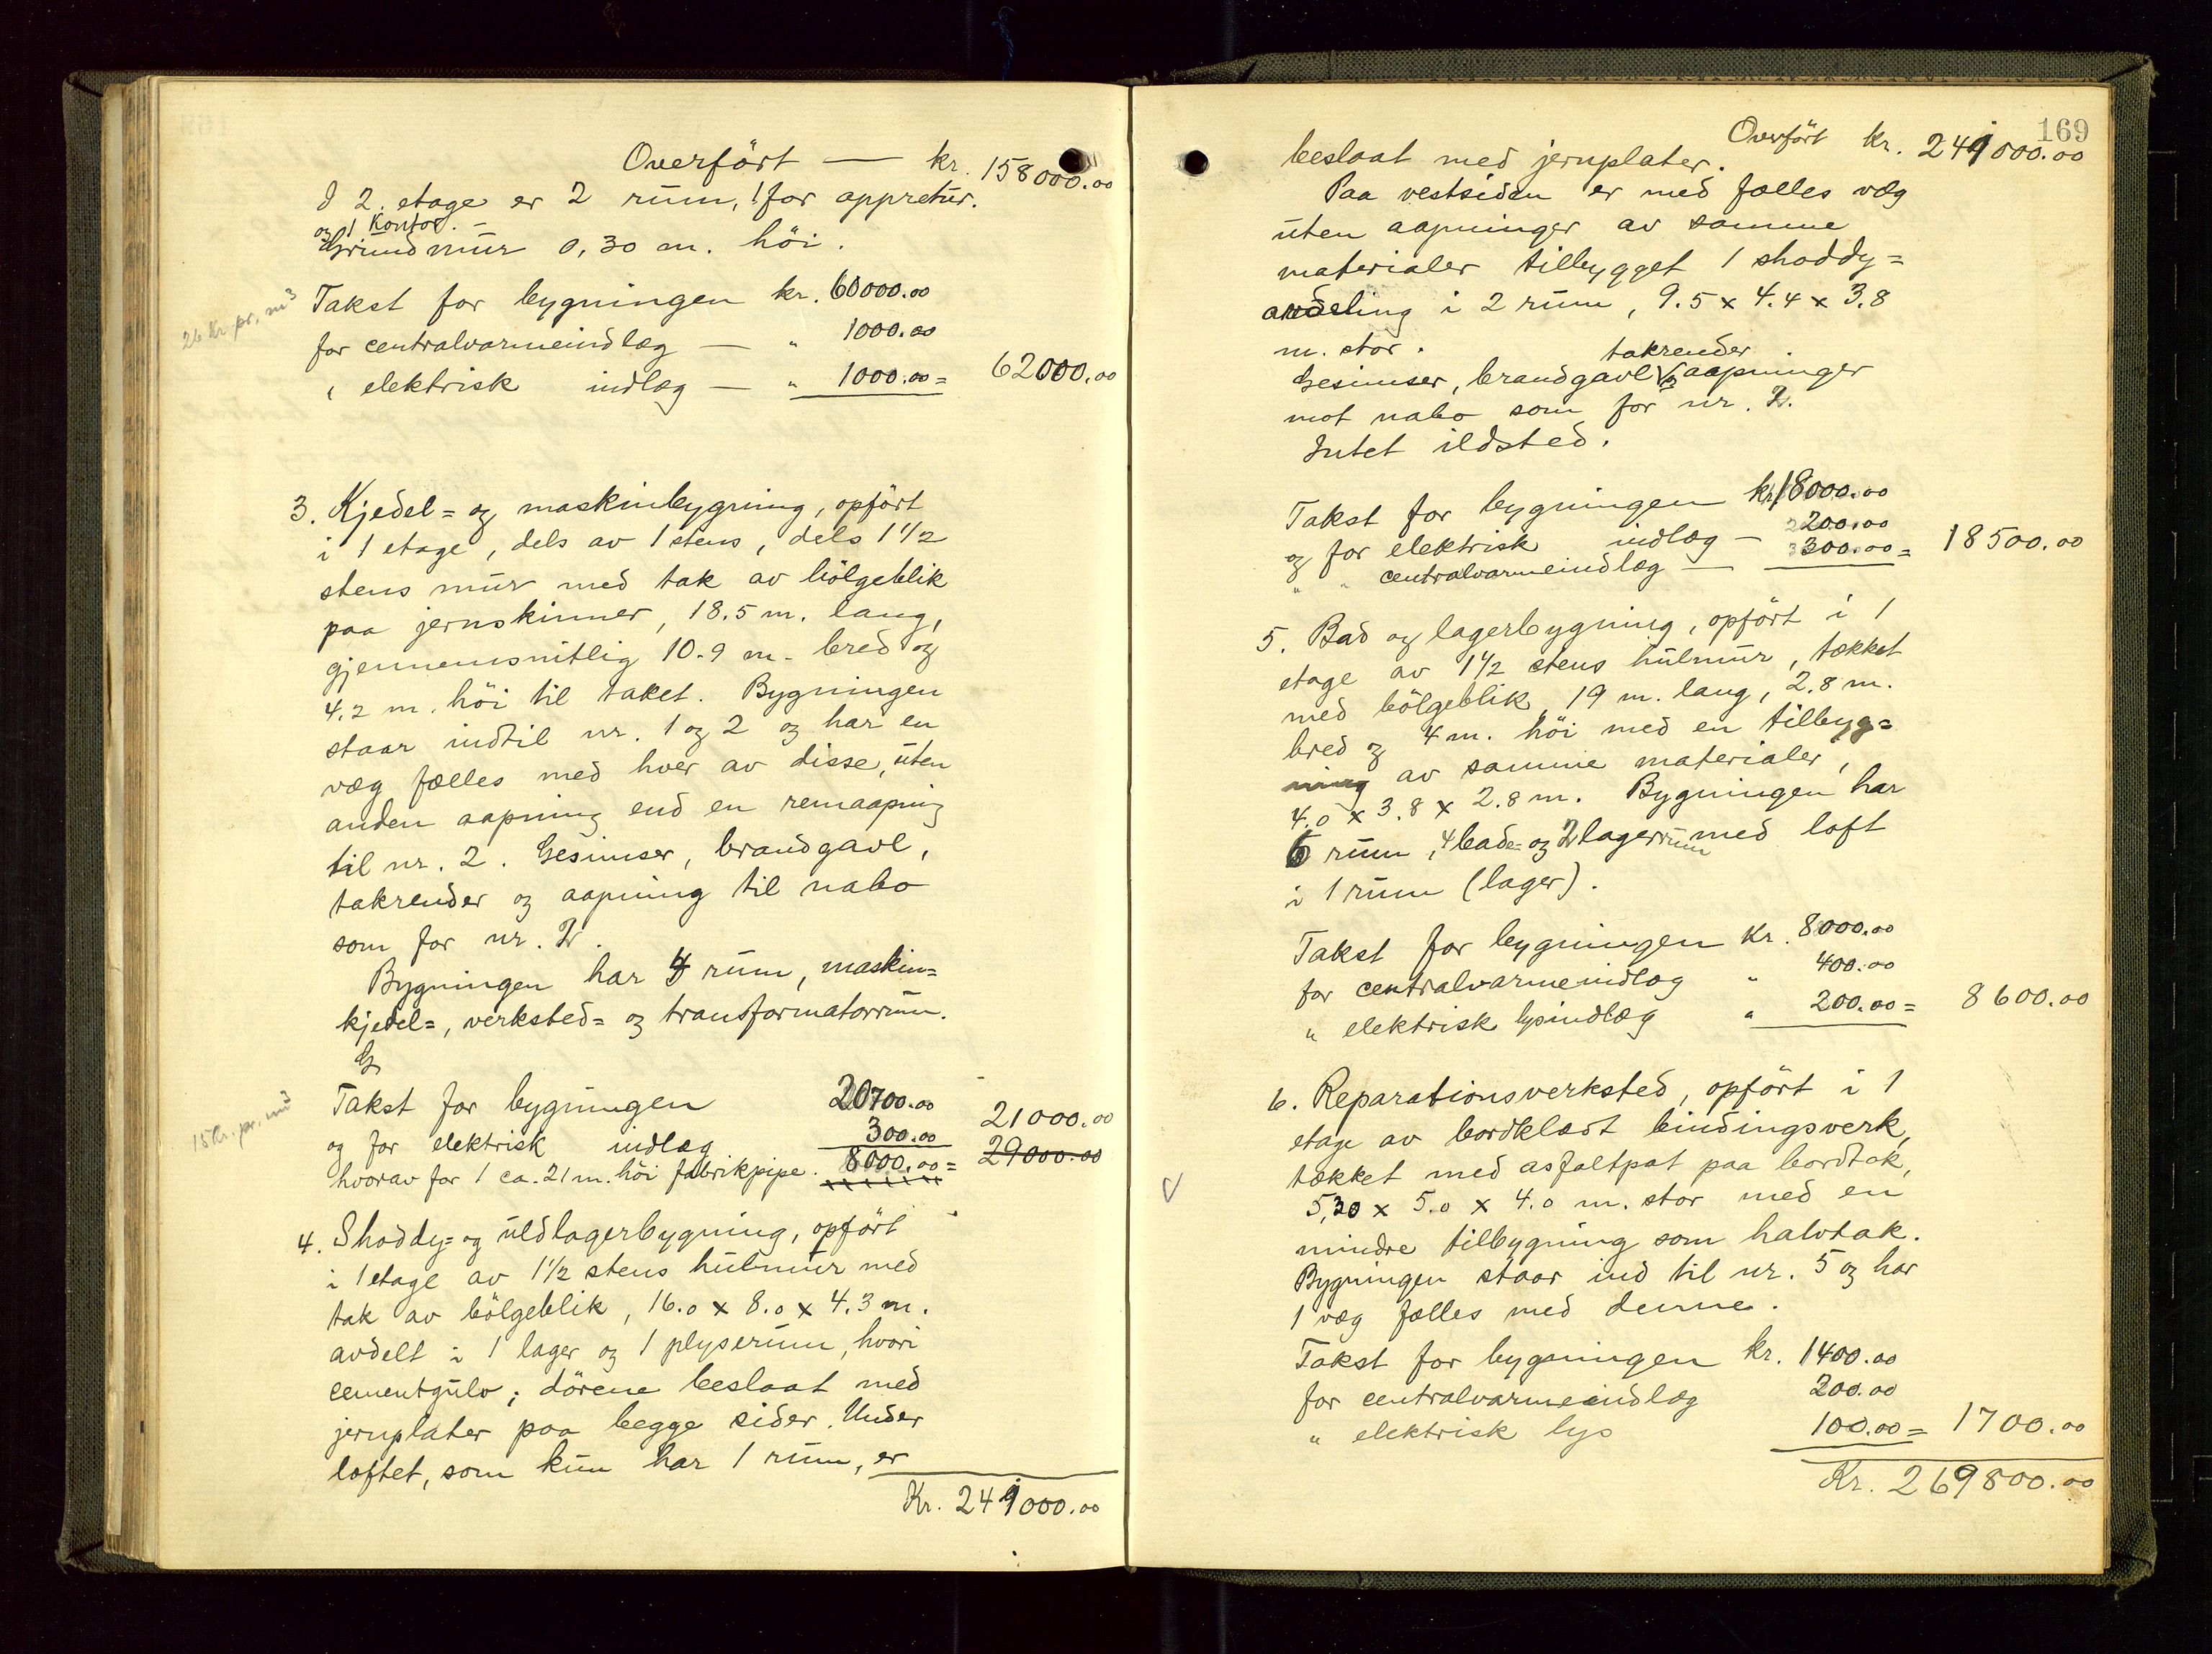 Overført — kr. 158000.00
I 2. etage er 2 rum, 1 for appretur.
og 1 Kontor. –
Grundmur 0,30 m. höi.
26 Kr. pr. m³
Takst for bygningen kr. 60000.00
for centralvarmeindlæg — " 1000.00
" elektrisk indlæg — " 1000.00 = 62000.00
3. Kjedel= og maskinbygning, opført
i 1 etage, dels av 1 stens, dels 1 1/2
stens mur med tak av bölgeblik
paa jernskinner, 18.5 m. lang,
gjennemsnitlig 10.9 m. bred og
4.2 m. höi til taket. Bygningen
staar indtil nr. 1 og 2 og har en
væg fælles med hver av disse, uten
anden aapning end en remaapning
til nr. 2. Gesimser, brandgavl,
takrender og aapning til nabo
som for nr. 2.
Bygningen har 4 rum, maskin=
kjedel=, verksted= og transformatorrum.
G
15 Kr. pr. m³
Takst for bygningen 20700.00
og for elektrisk indlæg 300.00 21000.00
hvorav for 1 ca. 21 m. höi fabrikpipe. 8000.00 = 29000.00
4. Shoddy= og uldlagerbygning, opført
i 1 etage av 1 1/2 stens hulmur med
tak av bölgeblik, 16.0 x 8.0 x 4.3 m.
avdelt i 1 lager og 1 plyserum, hvori
cementgulv; dörene beslaat med
jernplater paa begge sider. Under
loftet, som kun har 1 rum, er
Kr. 241000.00
169
Overført kr. 241000.00
beslaat med jernplater.
Paa vestsiden er med fælles væg
uten aapninger av samme
materialer tilbygget 1 shoddy=
avdeling i 2 rum, 9.5 x 4.4 x 3.8
m. stor.
takrender
Gesimser, brandgavl og aapninger
mot nabo som for nr. 2.
Intet ildsted.
Takst for bygningen kr. 18000.00
og for elektrisk indlæg — 200.00
" " centralvarmeindlæg — 300.00 = 18500.00
5. Bad og lagerbygning, opført i 1
etage av 1 1/2 stens hulmur, tækket
med bölgeblik, 19 m. lang, 2.8 m.
bred og 4 m. höi med en tilbyg=
ning av samme materialer,
4.0 x 3.8 x 2.8 m. Bygningen har
6 rum, 4 bade= og 2 lagerrum med loft
i 1 rum (lager).
Takst for bygningen Kr. 8000.00
for centralvarmeindlæg " 400.00
" elektrisk lysindlæg " 200.00 = 8600.00
6. Reparationsverksted, opført i 1
etage av bordklædt bindingsverk,
tækket med asfaltpat paa bordtak,
5,30 x 5.0 x 4.0 m. stor med en
mindre tilbygning som halvtak.
Bygningen staar ind til nr. 5 og har
1 væg fælles med denne.
Takst for bygningen kr. 1400.00
for centralvarmeindlæg 200.00
" elektrisk lys 100.00 = 1700.00
Kr. 269800.00